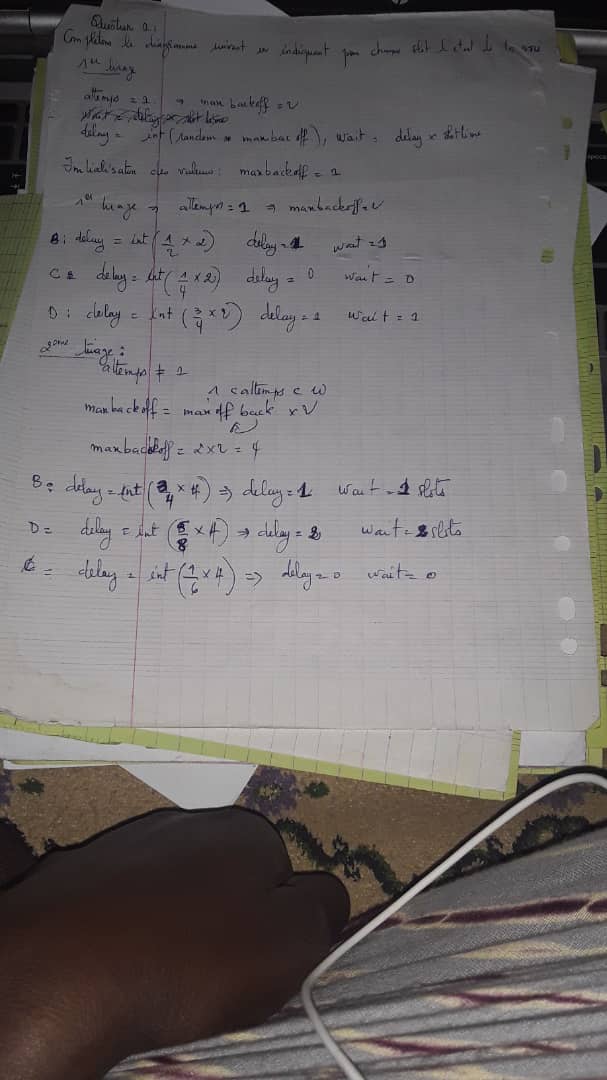 Question 2:
Complétons le diagramme suivant en indiquant pour chaque slot l'état de la voie
1er tirage
attemps = 1 → maxbackoff = 2
wait = delay × slot time
delay = int (random × maxbackoff), wait = delay × slotime
Initialisation des valeurs : maxbackoff = 1
1er tirage → attemps = 1 ⇒ maxbackoff = 2
B : delay = int (1/2 × 2) delay = 1 wait = 1
C : delay = int (1/4 × 2) delay = 0 wait = 0
D : delay = int (3/4 × 2) delay = 1 wait = 1
2ème tirage :
attemps ≠ 1
1 < attemps <
maxbackoff = max off back × 2
maxbackoff = 2 × 2 = 4
B : delay = int ( /4 × 4) ⇒ delay = 1 wait = 1 slots
D = delay = int (5/8 × 4) → delay = 2 wait = 2 slots
C = delay = int (1/6 × 4) => delay = 0 wait = 0